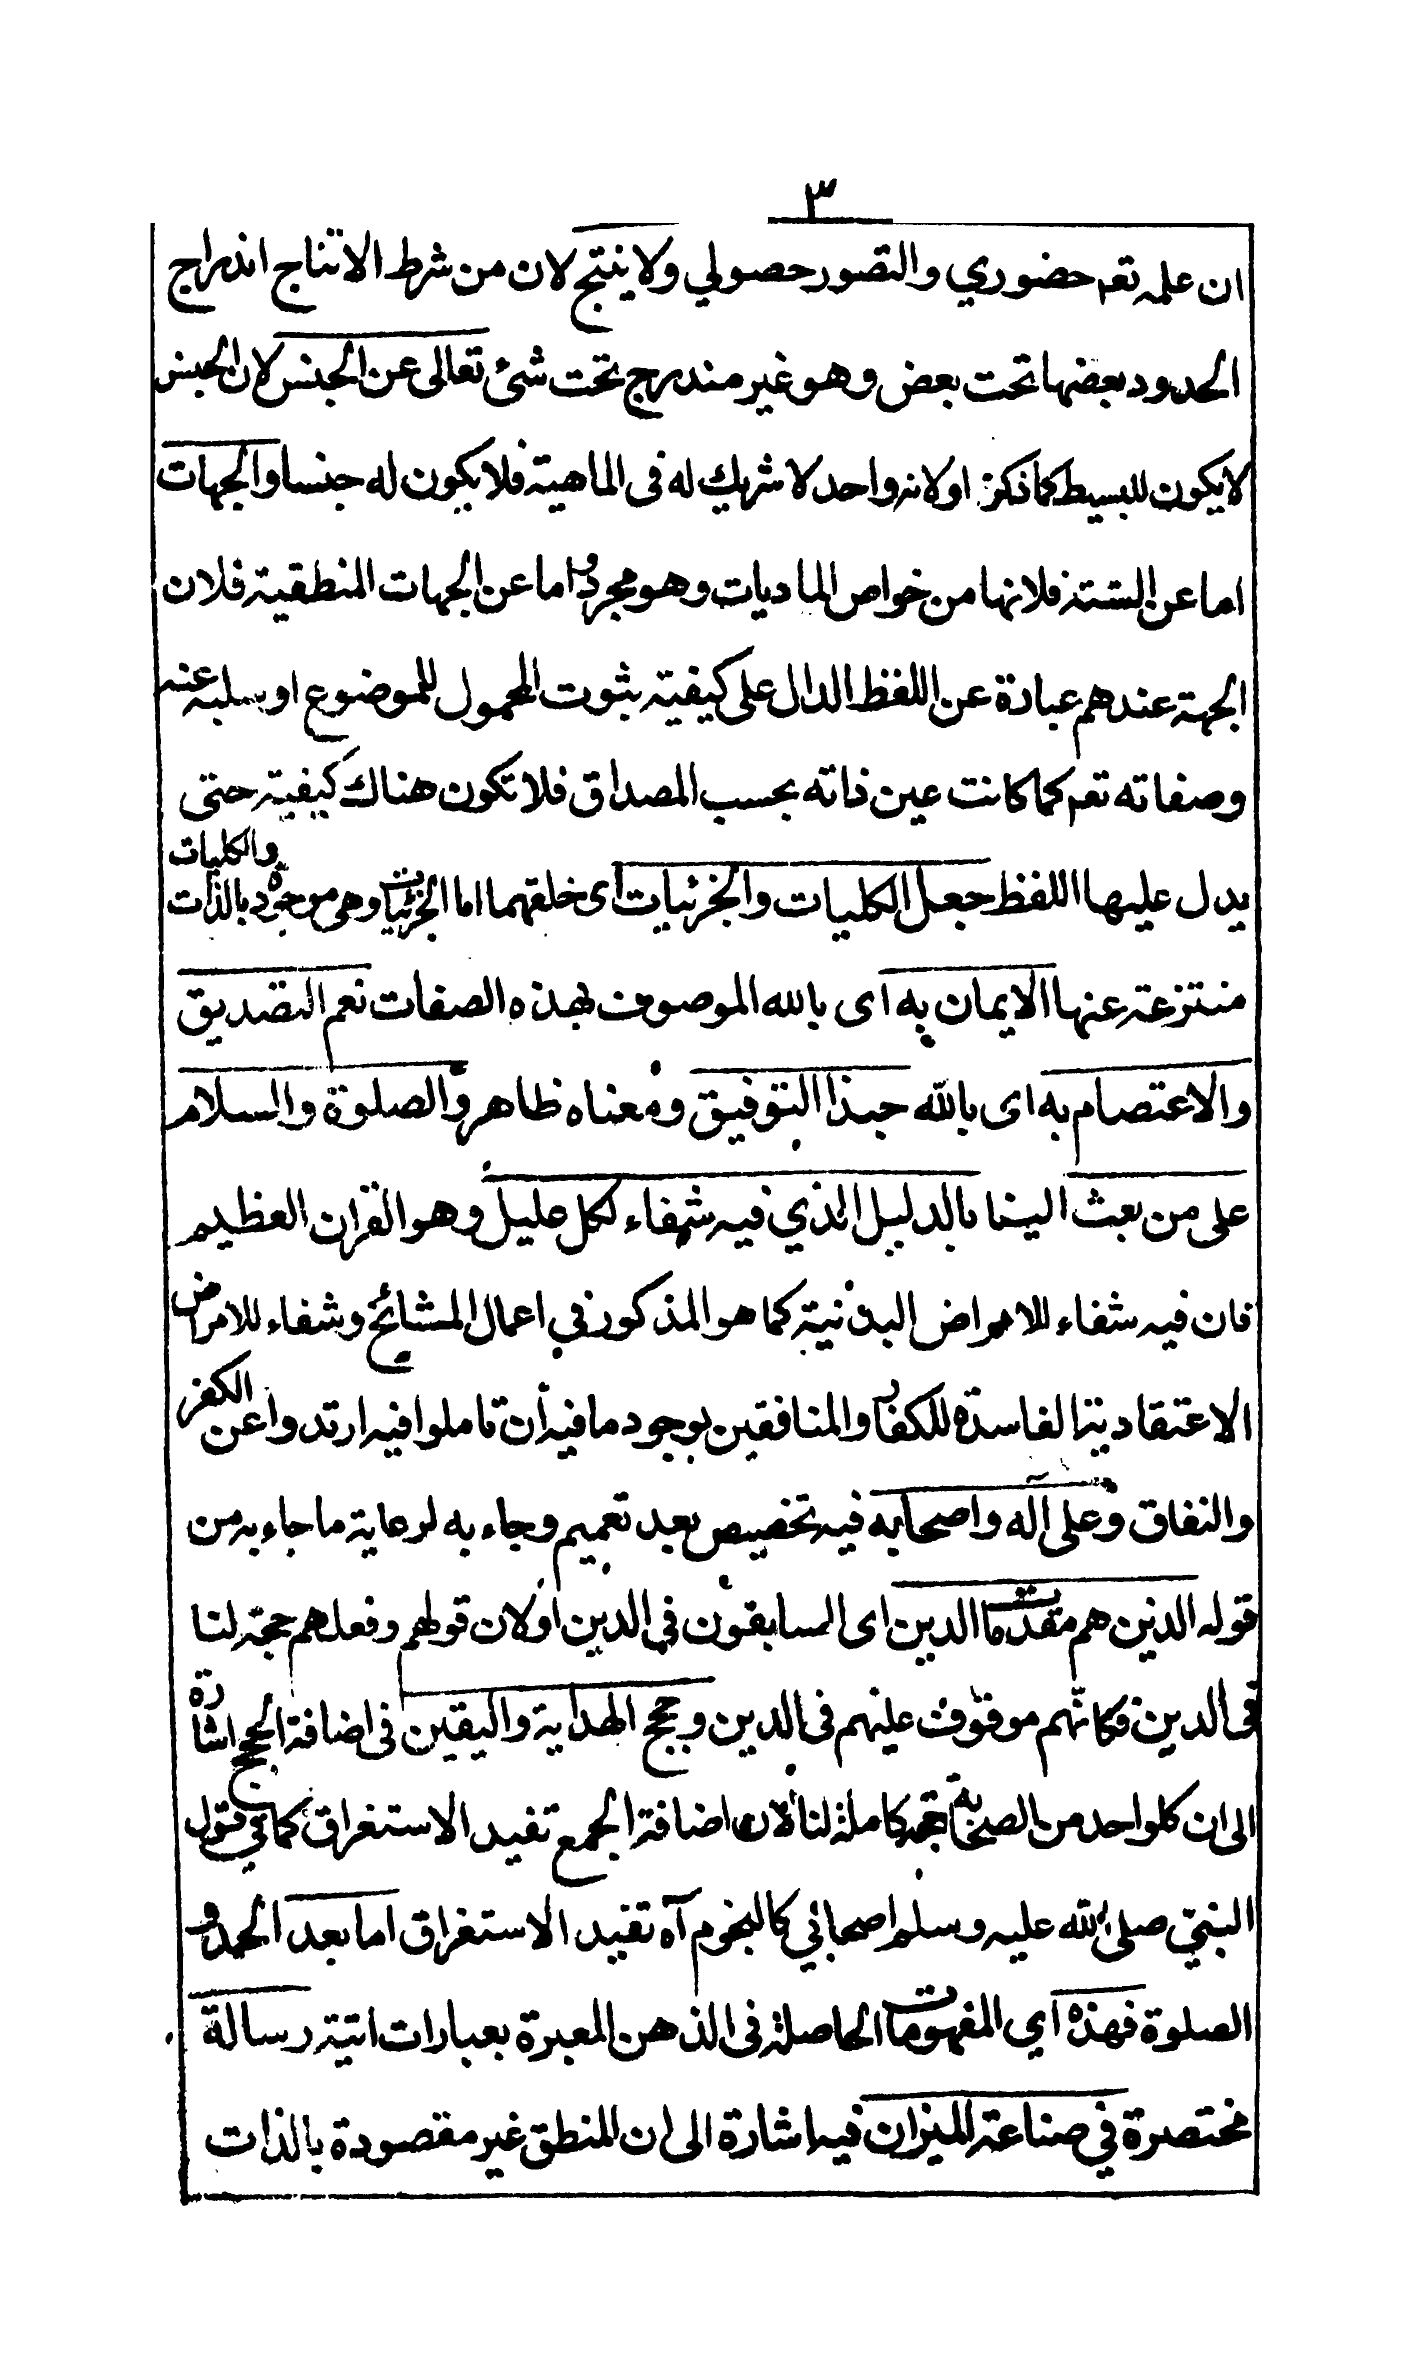 ٣
ان علمه تعم حضوري والتصور حصولي ولا ينتج لان من شرط الانتاج اندراج
الحدود بعضها تحت بعض وهو غير مندرج تحت شئ تعالى عن الجنس لان الجنس
لا يكون للبسيط كما ذكر اولانه واحد لا شريك له فى الماهية فلا يكون له جنسا والجهات
اما عن الستة فلانها من خواص الماديات وهو مجرد واما عن الجهات المنطقية فلان
الجهة عندهم عبارة عن اللفظ الدال على كيفية بثوت المحمول للموضوع او سلبه عنه
وصفاته تعم كما كانت عين ذاته بحسب المصداق فلا تكون هناك كيفية حتى
يدل عليها اللفظ جعل الكليات والجزئيات اى خلقهما اما الجزئيات وهى موجودة بالذات والكليات
منتزعة عنها الايمان به اى بالله الموصوف بهذه الصفات نعم التصديق
والاعتصام به اى بالله حبذا التوفيق ومعناه ظاهر والصلوة والسلام
على من بعث الينا بالدليل الذي فيه شفاء لكل عليل وهو القران العظيم
فان فيه شفاء للامراض البدنية كما هو المذكور في اعمال المشائخ وشفاء للامراض
الاعتقادية الفاسدة للكفار والمنافقين بوجود ما فيه ان تاملوا فيه ارتدوا عن الكفر
والنفاق وعلى آله واصحابه فيه تخصيص بعد تعميم وجاء به لرعاية ما جاء به من
قوله الذين هم مقدمات الدين اى السابقون فى الدين اولان قولهم وفعلهم حجة لنا
فى الدين فكانهم موقوف عليهم فى الدين وحجج الهداية واليقين فى اضافة الحجج اشارة
الى ان كلواحد من الصحابة حجة كاملة لنا لان اضافة الجمع تفيد الاستغراق كما في قول
النبيّ صلى الله عليه وسلم اصحابي كالنجوم آه تفيد الاستغراق اما بعد الحمد و
الصلوة فهذه اي المفهومات الحاصلة فى الذهن المعبرة بعبارات اتية رسالة
مختصرة في صناعة الميزان فيه اشارة الى ان المنطق غير مقصودة بالذات